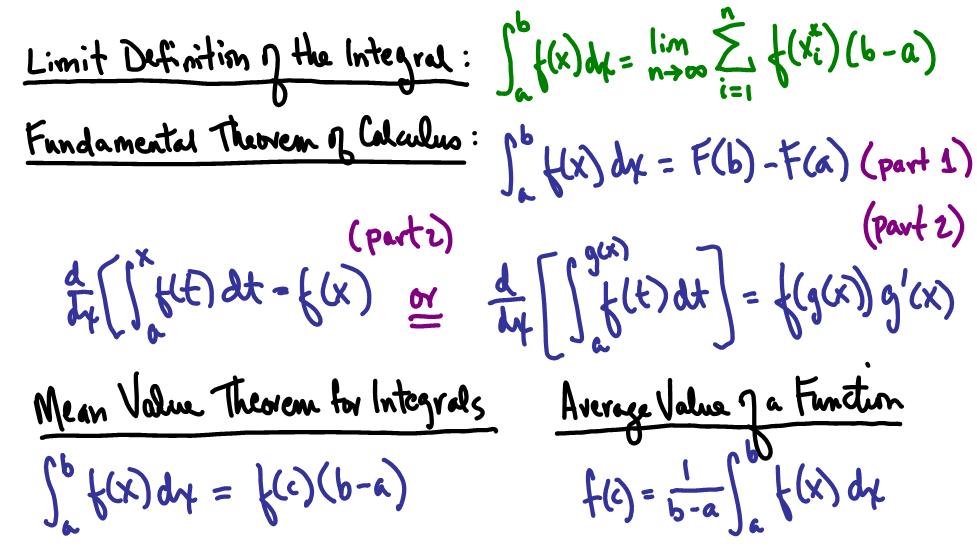 Limit Definition of the Integral : ∫_a^b f(x) dx = lim_{n→∞} ∑_{i=1}^n f(x_i^*) (b-a)
Fundamental Theorem of Calculus : ∫_a^b f(x) dx = F(b) - F(a) (part 1)
(part 2) (part 2)
d/dx [ ∫_a^x f(t) dt = f(x) or d/dx [ ∫_a^{g(x)} f(t) dt ] = f(g(x)) g'(x)
Mean Value Theorem for Integrals Average Value of a Function
∫_a^b f(x) dx = f(c) (b-a) f(c) = 1/(b-a) ∫_a^b f(x) dx